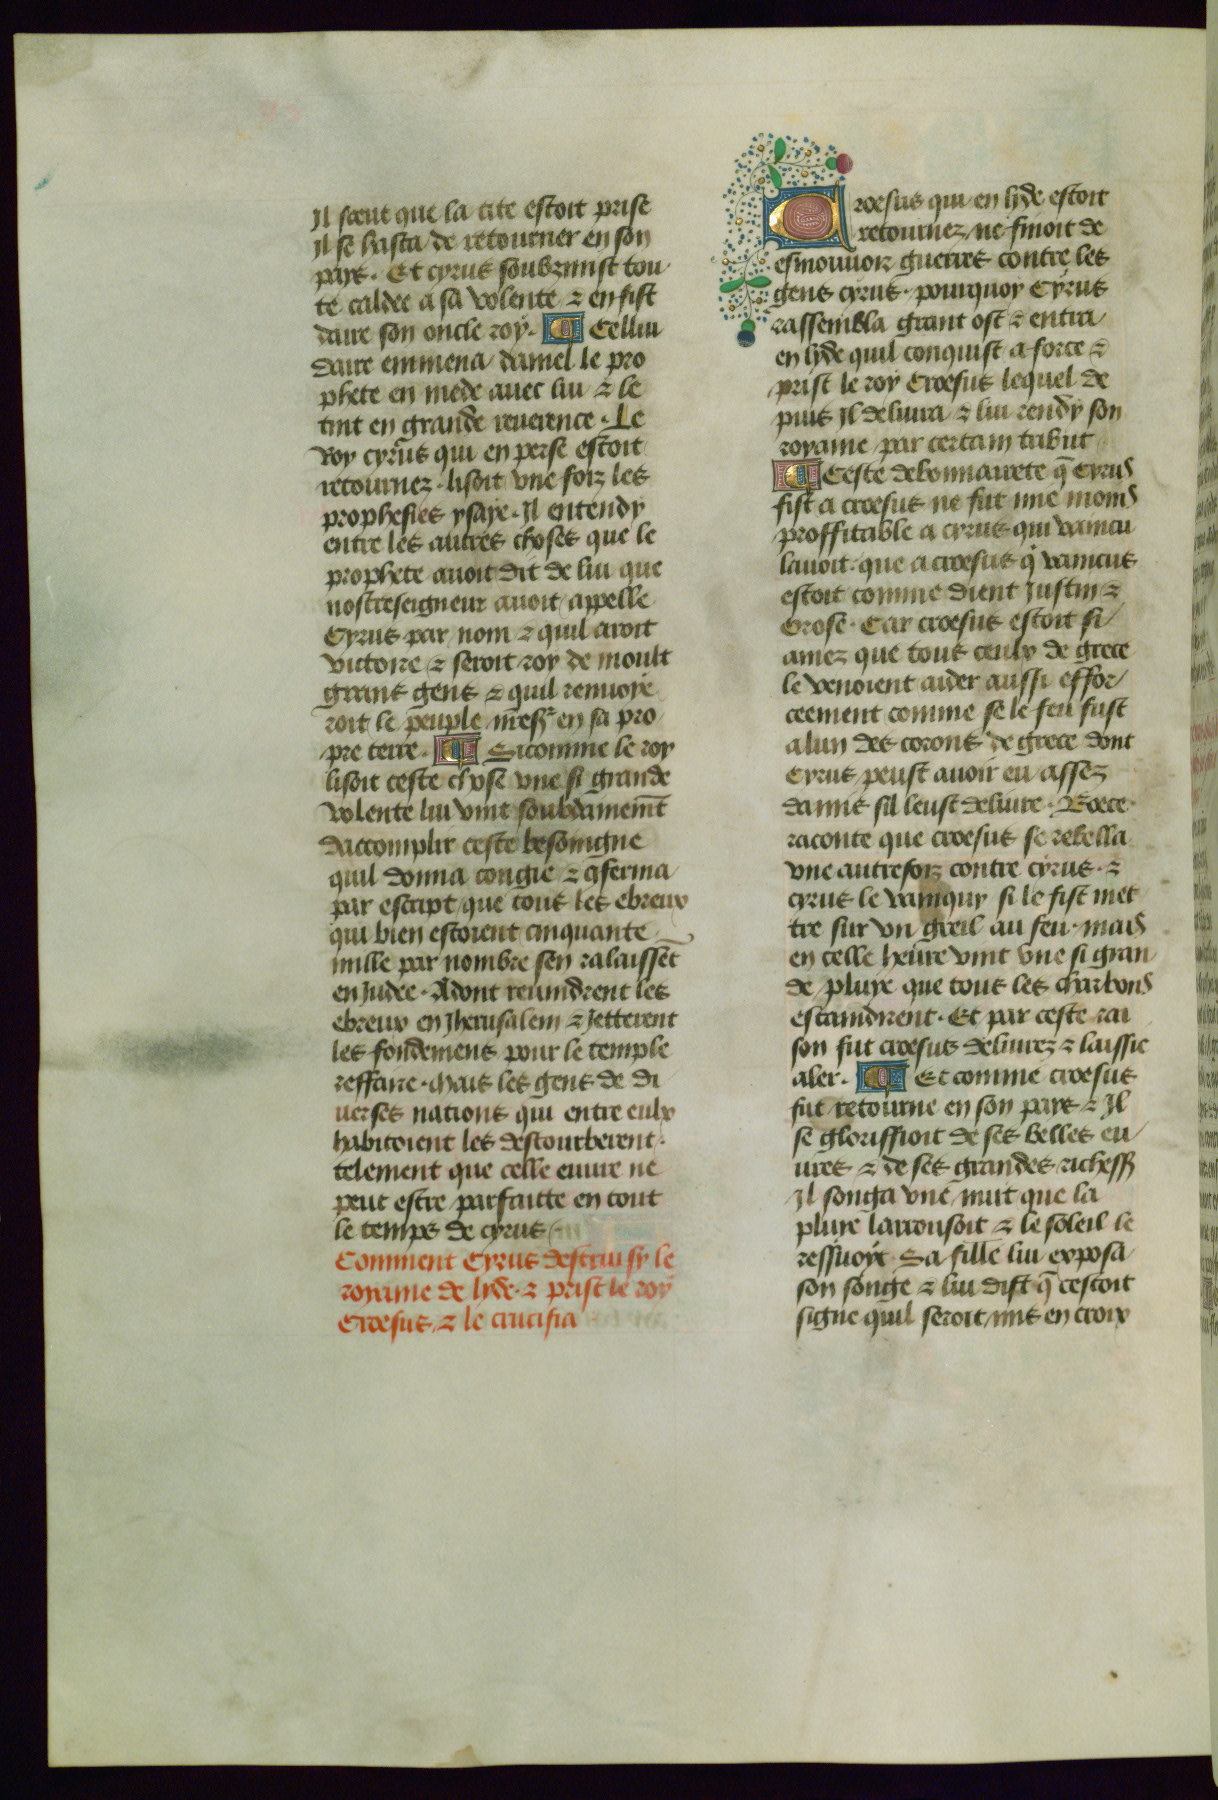 Il sceut que la cite estoit prise
Il se hasta de retourner en son
pays. Et cyrus soubzmist tou
te caldee a sa volente ⁊ en fist
daire son oncle roy. Celluy
daire emmena daniel le pro
phete en mede auec lui ⁊ le
tint en grande reuerence. Le
roy cyrus qui en perse estoit
retournez lisoit vne foiz les
prophesies ysaye. Il entendy
entre les autres choses que le
prophete auoit dit de lui que
nostreseigneur auoit appelle
Cyrus par nom ⁊ quil aroit
victoire ⁊ seroit roy de moult
grans gens ⁊ quil renuoye
roit le peuple en sa pro
pre terre. Sicomme le roy
lisoit ceste chose vne si grande
volente lui vint soubdainemẽt
daccomplir ceste besoingne
quil donna congie ⁊ cõferma
par escript que tous les ebreux
qui bien estoient cinquante
mille par nombre sen ralaissẽt
en Judee. Adont reuindrent les
ebreux en Jherusalem ⁊ Jetterent
les fondemens pour le temple
reffaire. Mais les gens de di
uerses nations qui entre eulx
habitoient les destourberent.
telement que celle euure ne
peut estre parfaitte en tout
le temps de cyrus
Comment Cyrus destruisy le
royaume de lyde ⁊ prist le roy
Croesus ⁊ le crucifia
Croesus qui en lyde estoit
retournez ne finoit de
esmouuoir guerres contre les
gens cyrus. pourquoy Cyrus
rassembla grant ost ⁊ entra
en lyde quil conquist a force ⁊
prist le roy Croesus lequel de
puis Il deliura ⁊ lui rendy son
royaume par certain tribut
Ceste debonnairete q̃ Cyrus
fist a croesus ne fut mie moins
proffitable a cyrus qui vaincu
lauoit. que a croesus q̇ vaincus
estoit comme dient Justin ⁊
Orose. Car croesus estoit si
amez que tous ceulx de grece
le venoient aider aussi effor
ceement comme se le feu fust
a lun des corons de grece dont
Cyrus peust auoir eu assez
dannis sil leust deliure. Boece
raconte que croesus se rebella
vne autrefoiz contre cyrus. ⁊
cyrus le vainquy si le fist met
tre sur vn greil au feu. mais
en celle heure vint vne si gran
de pluye que tous les charbons
estaindirent. Et par ceste rai
son fut croesus deliurez ⁊ laissie
aler. Et comme croesus
fut retourne en son pays ⁊ Il
se gloriffioit de ses belles eu
ures ⁊ de ses grandes richess̃
Il songa vne nuit que la
pluye larrousoit ⁊ le soleil le
ressuoyt. Sa fille lui exposa
son songe ⁊ lui dist q̃ cestoit
signe quil seroit mis en croix